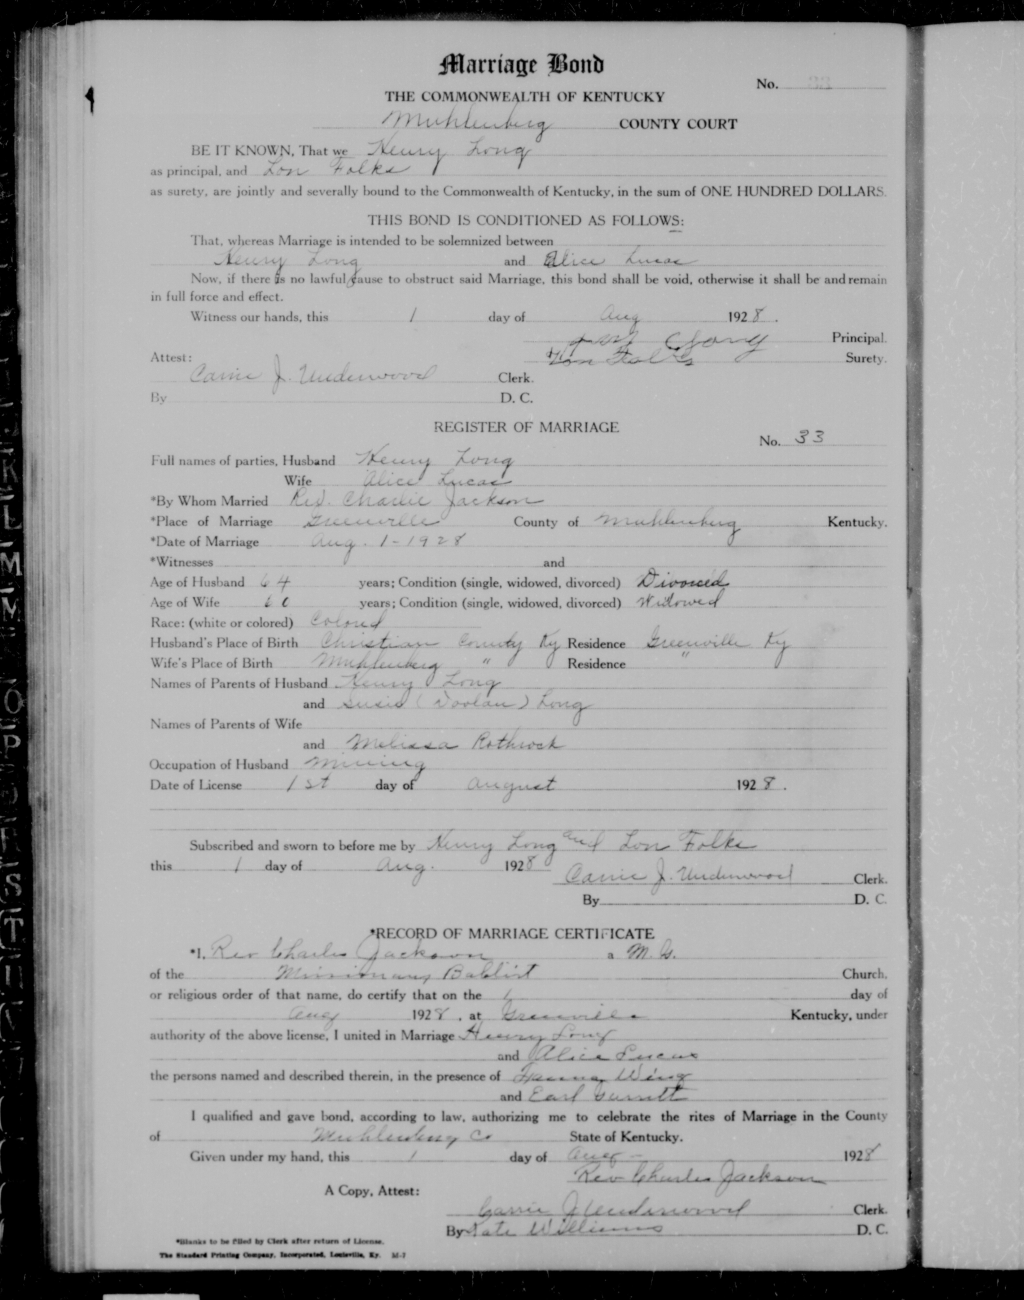 Marriage Bond
No. 33
THE COMMONWEALTH OF KENTUCKY
Muhlenberg COUNTY COURT
BE IT KNOWN, That we Henry Long
as principal, and Lon Folks
as surety, are jointly and severally bound to the Commonwealth of Kentucky, in the sum of ONE HUNDRED DOLLARS.
THIS BOND IS CONDITIONED AS FOLLOWS:
That, whereas Marriage is intended to be solemnized between
Henry Long and Alice Lucas
Now, if there is no lawful cause to obstruct said Marriage, this bond shall be void, otherwise it shall be and remain
in full force and effect.
Witness our hands, this 1 day of Aug 1928.
Long Principal.
Lon Folks Surety.
Attest:
Carrie J. Underwood Clerk.
By D. C.
REGISTER OF MARRIAGE
No. 33
Full names of parties, Husband Henry Long
Wife Alice Lucas
*By Whom Married Rev. Charlie Jackson
*Place of Marriage Greenville County of Muhlenberg Kentucky.
*Date of Marriage Aug. 1-1928
*Witnesses and
Age of Husband 64 years; Condition (single, widowed, divorced) Divorced
Age of Wife 60 years; Condition (single, widowed, divorced) Widowed
Race: (white or colored) Colored
Husband's Place of Birth Christian County Ky Residence Greenville Ky
Wife's Place of Birth Muhlenberg " Residence "
Names of Parents of Husband Henry Long
and Susie ( ) Long
Names of Parents of Wife
and Melissa Rothrock
Occupation of Husband Mining
Date of License 1st day of August 1928.
Subscribed and sworn to before me by Henry Long and Lon Folks
this 1 day of Aug. 1928
Carrie J. Underwood Clerk.
By D. C.
*RECORD OF MARRIAGE CERTIFICATE
*I, Rev Charles Jackson a M. G.
of the Missionary Babtist Church,
or religious order of that name, do certify that on the 1 day of
Aug 1928, at Greenville Kentucky, under
authority of the above license, I united in Marriage Henry Long
and Alice Lucas
the persons named and described therein, in the presence of Wing
and Earl Garrett
I qualified and gave bond, according to law, authorizing me to celebrate the rites of Marriage in the County
of Muhlenberg Co State of Kentucky.
Given under my hand, this 1 day of Aug - 1928
Rev Charles Jackson
A Copy, Attest:
Carrie J Underwood Clerk.
By Kate Williams D. C.
*Blanks to be filed by Clerk after return of License.
The Standard Printing Company, Incorporated, Louisville, Ky. M-7